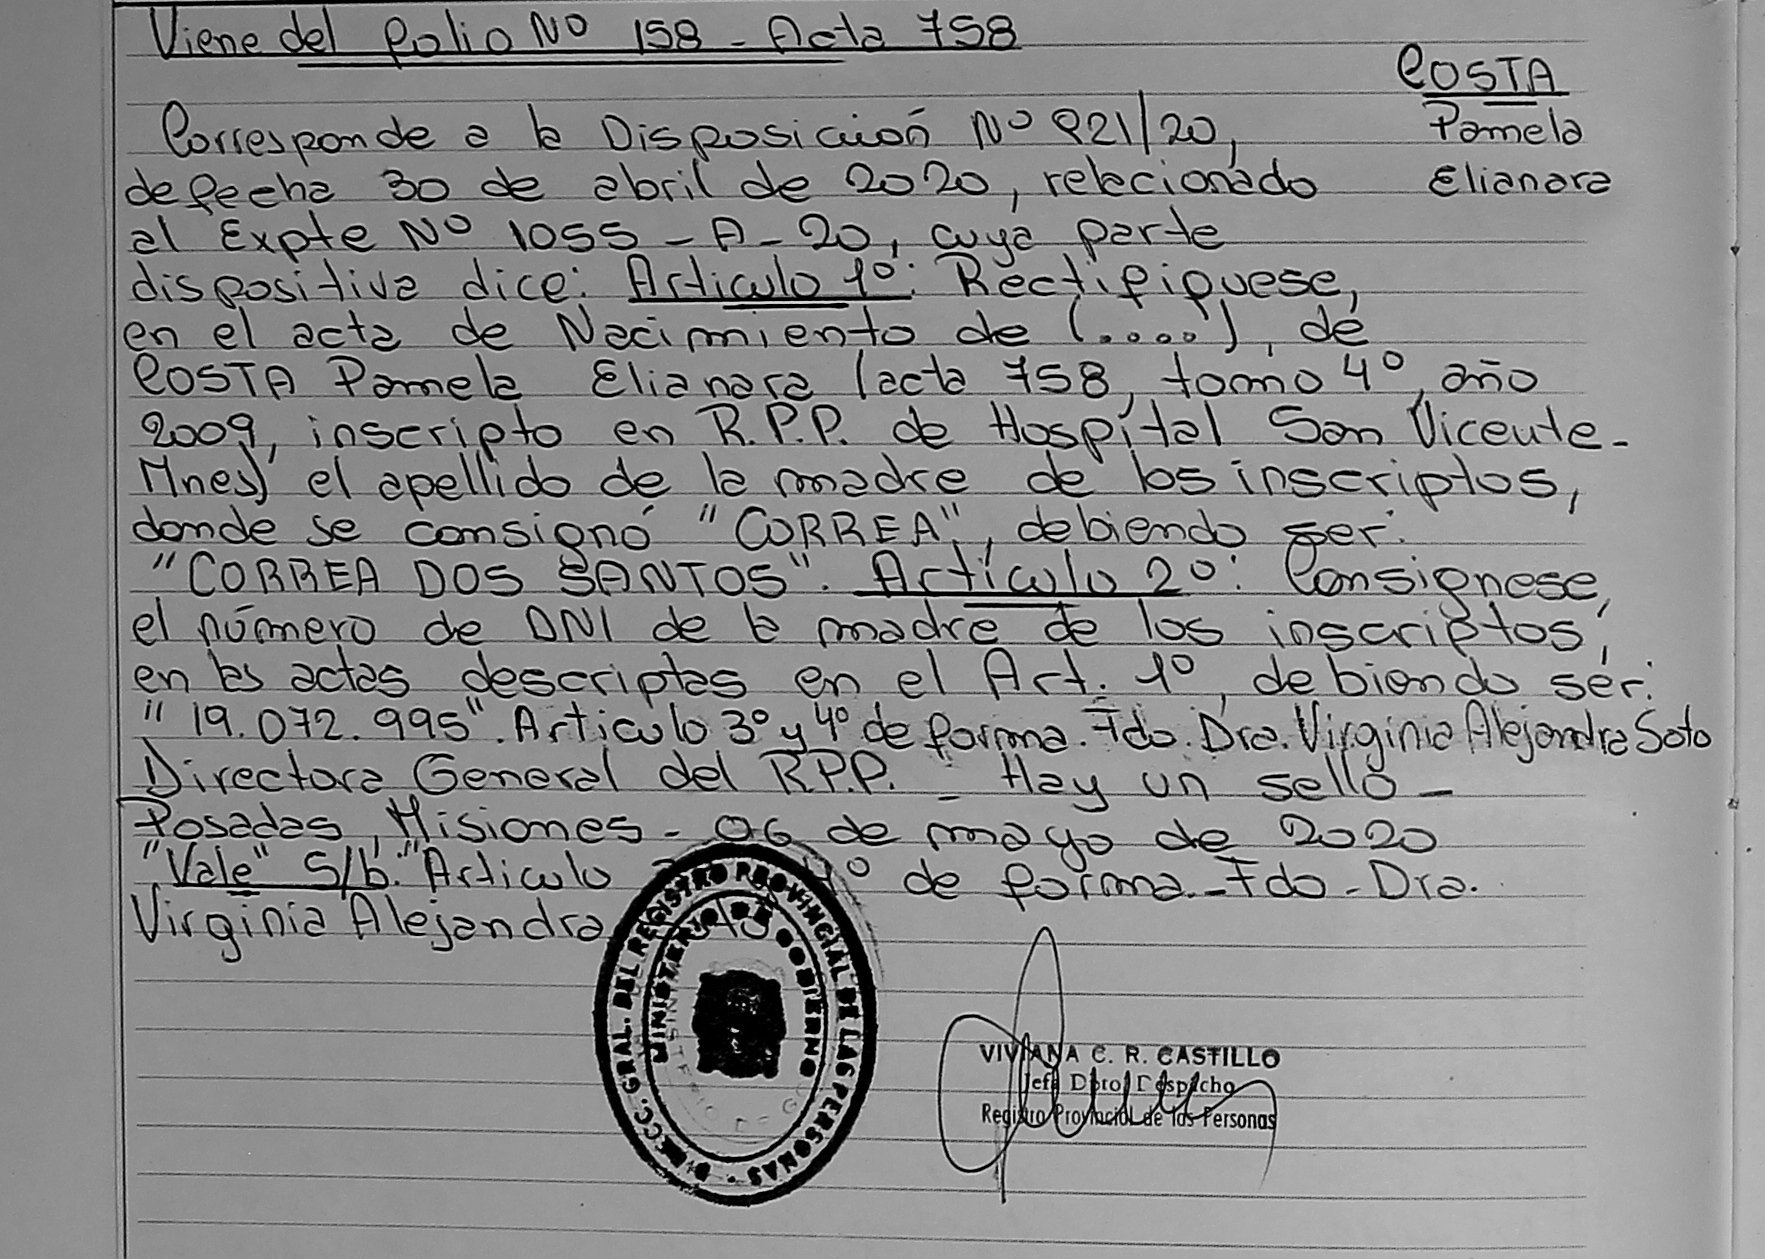 Viene del Folio Nº 158 - Acta 758
COSTA
Pamela
Elianara
Corresponde a la Disposición Nº 921/20,
de fecha 30 de abril de 2020, relacionado
al Expte Nº 1055 - A - 20, cuya parte
dispositiva dice: Articulo 1º: Rectifiquese,
en el acta de Nacimiento de (....), de
COSTA Pamela Elianara (acta 758, tomo 4º, año
2009, inscripto en R.P.P. de Hospital San Vicente-
Mnes) el apellido de la madre de los inscriptos,
donde se consignó "CORREA", debiendo ser:
"CORREA DOS SANTOS". Artículo 2º: Consignese,
el número de DNI de la madre de los inscriptos,
en las actas descriptas en el Art. 1º, debiendo ser:
"19.072.995". Articulo 3º y 4º de forma. Fdo. Dra. Virginia Alejandra Soto
Directora General del R.P.P. - Hay un sello -
Posadas, Misiones - 06 de mayo de 2020
"Vale" S/b. "Articulo 4º de forma. - Fdo - Dra.
Virginia Alejandra
DIRECC. GRAL. DEL REGISTRO PROVINCIAL DE LAS PERSONAS
MINISTERIO DE GOBIERNO
VIVIANA C. R. CASTILLO
Jefa Dpto. Despacho
Registro Provincial de las Personas